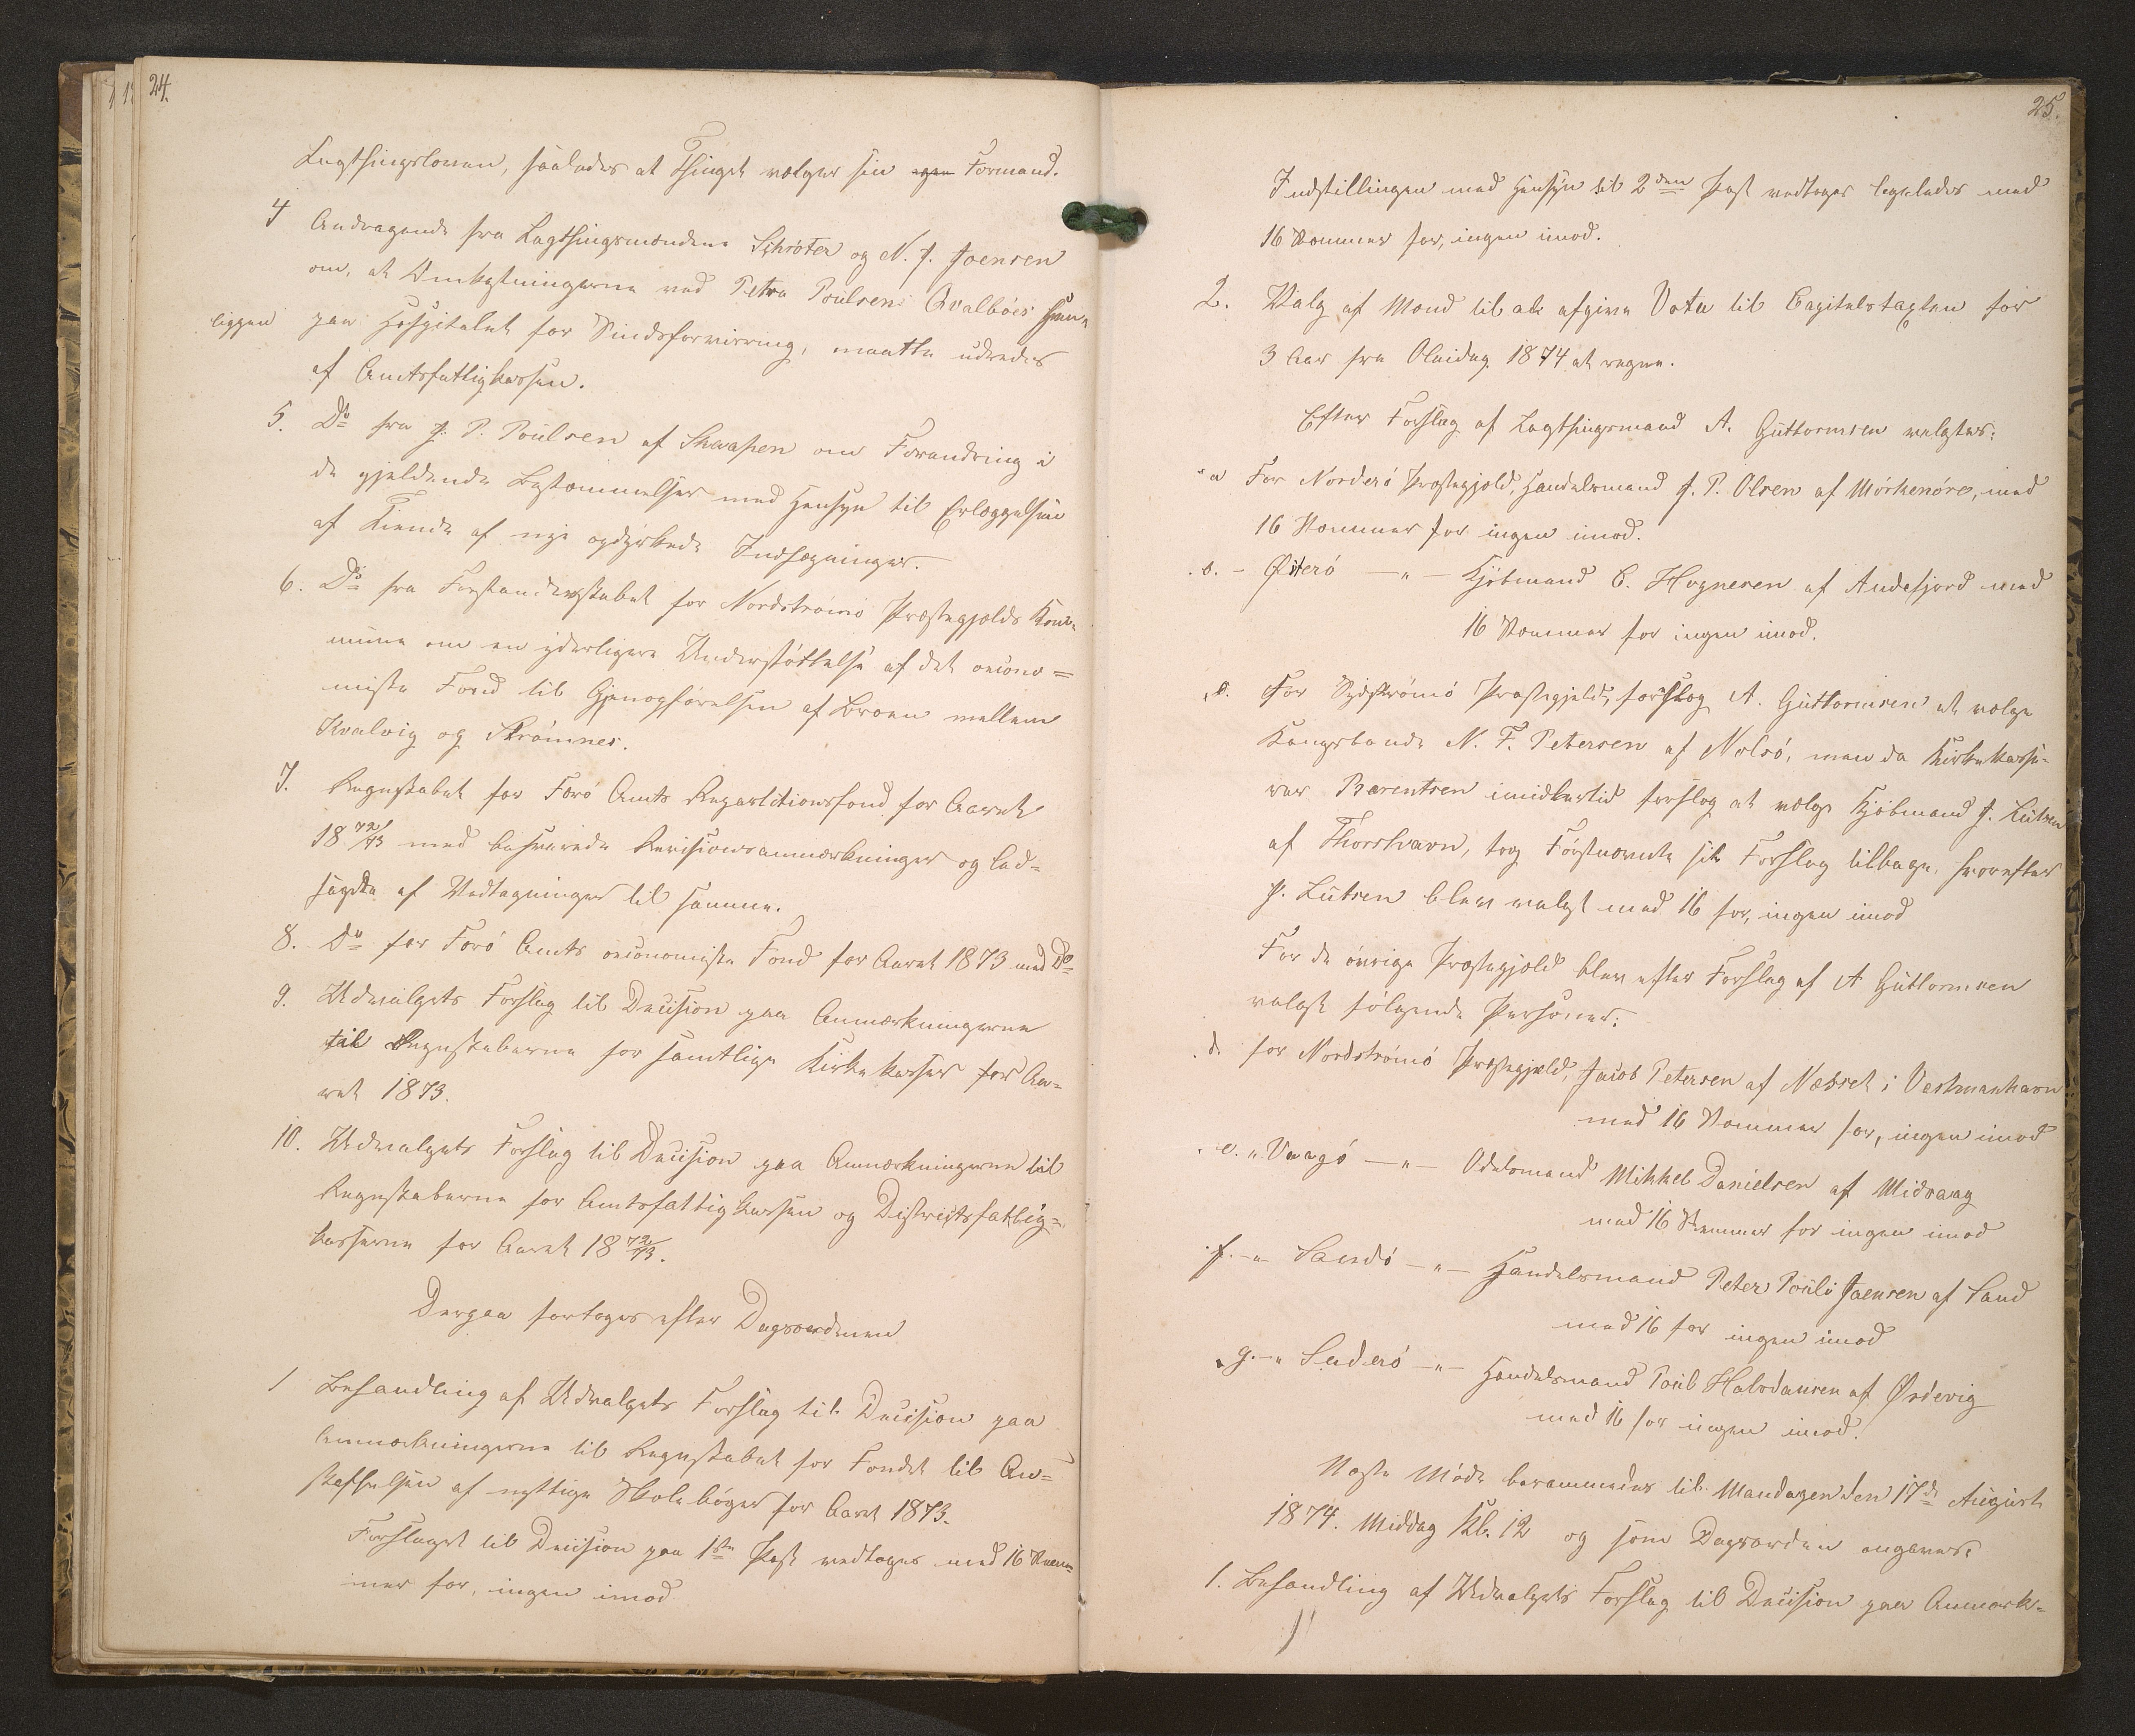 24.
Lagthingsloven, saaledes at Thinget vælger sin egen Formand.
4 Andragende fra Lagthingsmændene Schrøter og N. J. Joensen
om, at Omkostningerne ved Petra Poulsens Qvalbøes Hen-
liggen paa Hospitalet for Sindsforvirring, maatte udredes
af Amtsfattigkassen.
5. Do fra J. P. Poulsen af Skaapen om Forandring i
de gjeldende Bestemmelser med Hensyn til Erlæggelsen
af Tiende af nye opdyrkede Indhegninger.
6. Do fra Forstanderskabet for Nordstrømø Præstegjelds Kom-
mune om en yderligere Understøttelse af det oecono=
miske Fond til Gjenopførelsen af Broen mellem
Kvalvig og Strømnes.
7. Regnskabet for Færø Amts Repartitionsfond for Aaret
18 72/73 med besvarede Revisionsanmærkninger og led-
saget af Vedtegninger til samme.
8. Do for Færø Amts oeconomiske Fond for Aaret 1873 med Do
9. Udvalgets Forslag til Decision paa Anmærkningerne
til Regnskaberne for samtlige Kirkekasser for Aa-
ret 1873.
10. Udvalgets Forslag til Decision paa Anmærkningerne til
Regnskaberne for Amtsfattigkassen og Districtsfattig-
kasserne for Aaret 18 72/73.
Derpaa foretoges efter Dagsordenen
1 Behandling af Udvalgets Forslag til Decision paa
Anmærkningerne til Regnskabet for Fondet til An=
skaffelsen af nyttige Skolebøger for Aaret 1873.
Forslaget til Decision paa 1ste Post vedtoges med 16 Stem-
mer for, ingen imod
25.
Indstillingen med Hensyn til 2den Post vedtoges ligeledes med
16 Stemmer for, ingen imod.
2. Valg af Mænd til at afgive Vota til Capitelstaxten for
3 Aar fra Olaidag 1874 at regne.
Efter Forslag af Lagthingsmand A. Guttormsen valgtes:
a For Norderø Præstegjeld, Handelsmand J. P. Olsen af Mørkenøre, med
16 Stemmer for ingen imod.
b. - Østerø —"— Kjøbmand C. Hognesen af Andefjord med
16 Stemmer for ingen imod.
c. For Sydstrømø Præstegjeld, forslog A. Guttormsen at vælge
Kongsbonde N. F. Petersen af Nolsø, men da Kirkekasse-
rer Bærentsen imidlertid forslog at vælge Kjøbmand J. Lützen
af Thorshavn, tog Førstnævnte sit Forslag tilbage, hvorefter
J. Lützen blev valgt med 16 for, ingen imod
For de øvrige Præstegjeld blev efter Forslag af A Guttormsen
valgt følgende Personer:
d. for Nordstrømø Præstegjeld, Jacob Petersen af Næsset i Vestmanhavn
med 16 Stemmer for, ingen imod
e. " Vaagø —"— Odelsmand Mikkel Danielsen af Midvaag
med 16 Stemmer for ingen imod
f. - " Sandø —"— Handelsmand Peter Pouli Joensen af Sand
med 16 for ingen imod
g. - " Suderø —"— Handelsmand Poul Halvdansen af Ørdevig
med 16 for ingen imod.
Næste Møde berammedes til Mandagen den 17de August
1874. Middag Kl. 12 og som Dagsorden angaves:
1. Behandling af Udvalgets Forslag til Decision paa Anmærk-